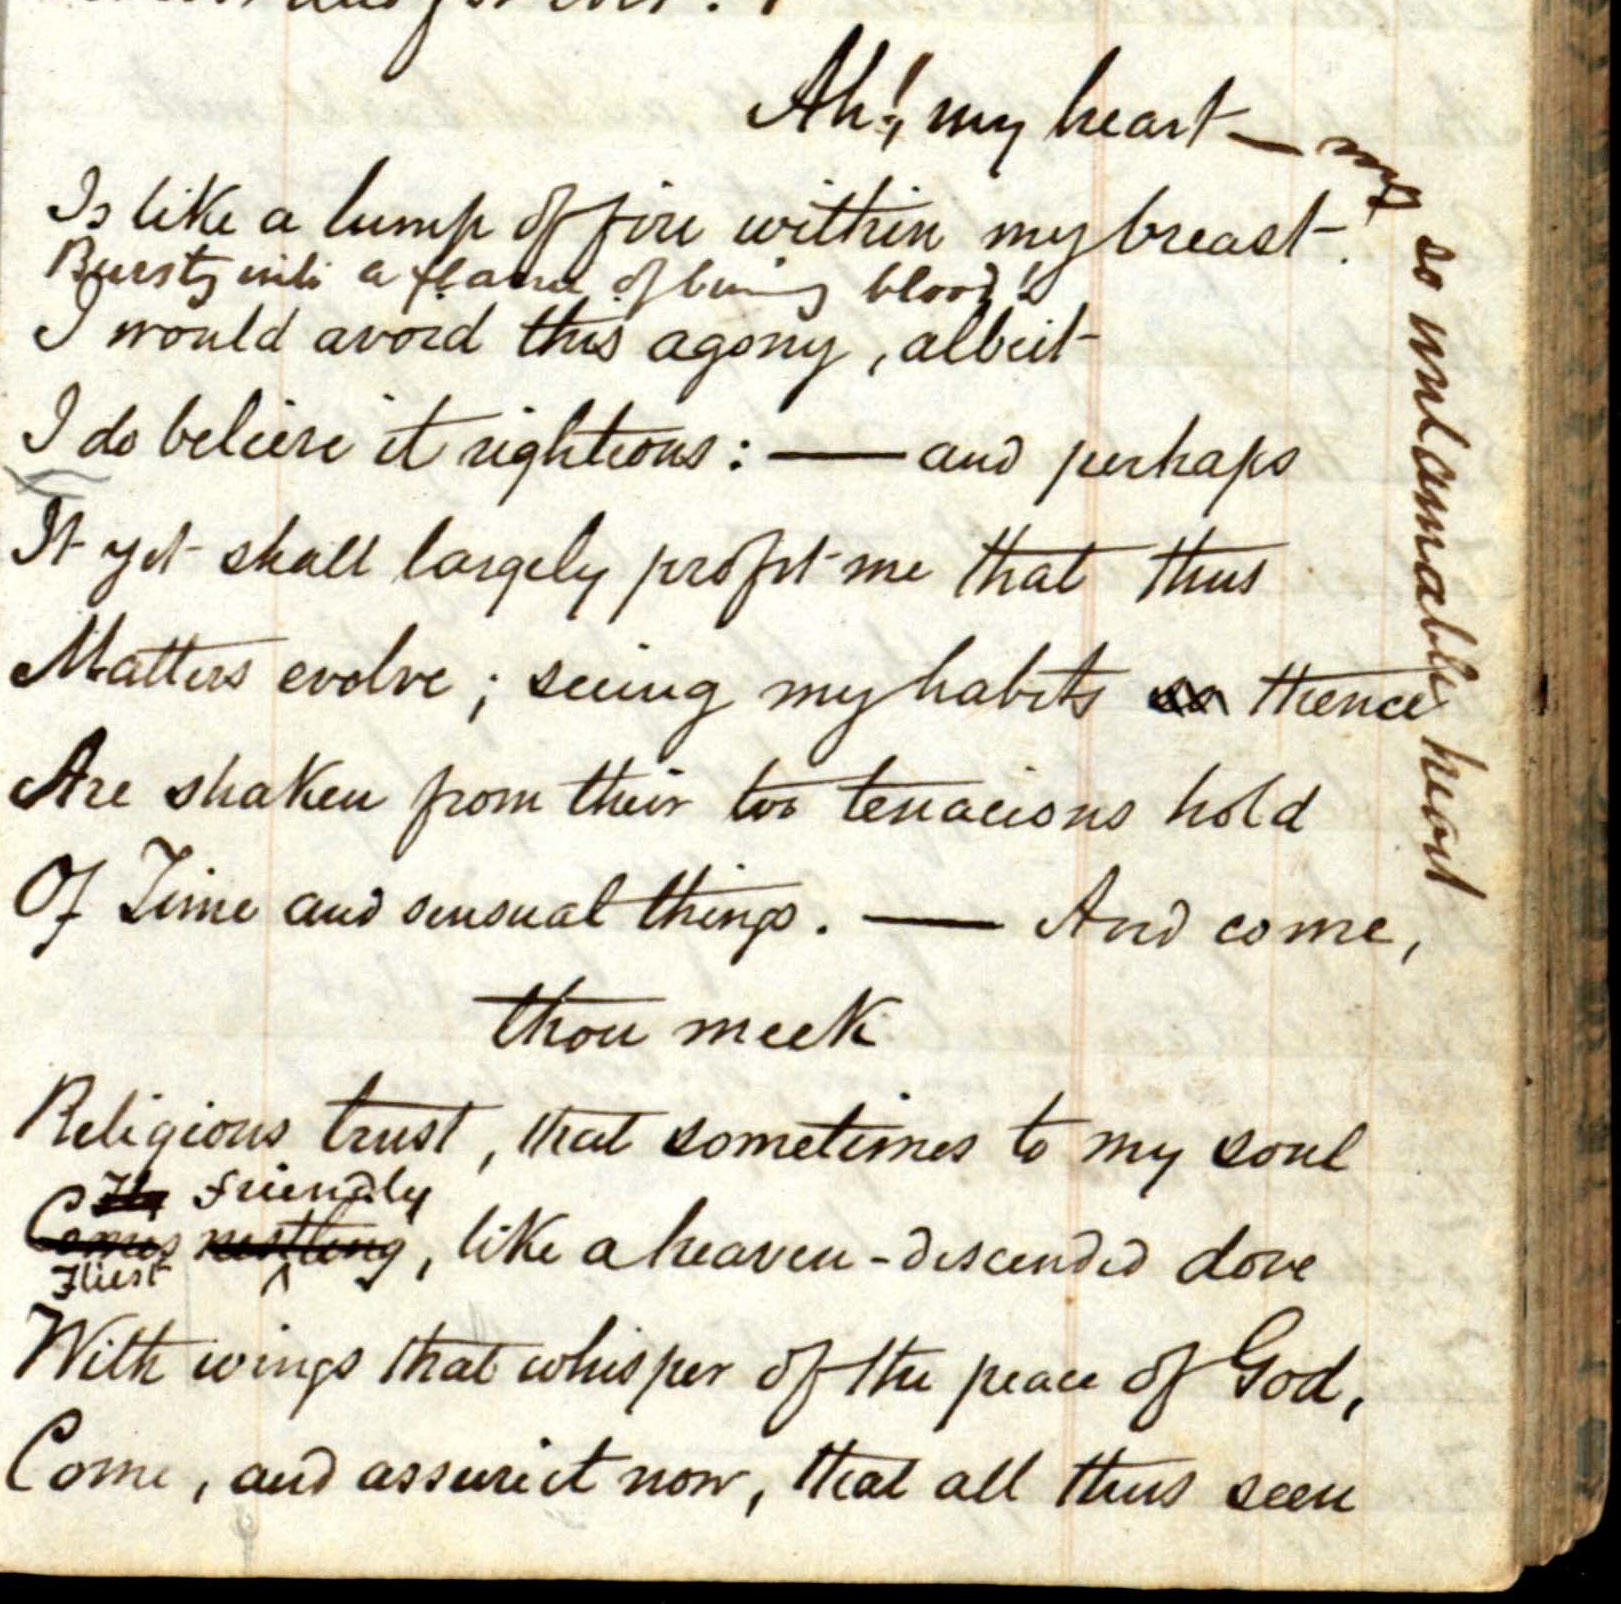 and for ever.
Ah! my heart — my so untamable heart
Is like a lump of fire within my breast!
Bursts into a flame of being blood!
I would avoid this agony, albeit
I do believe it righteous: — and perhaps
It yet shall largely profit me that thus
Matters evolve; seeing my habits so thence
Are shaken from their too tenacious hold
Of Time and sensual things. — And come,
thou meek
Religious trust, that sometimes to my soul
friendly
Comes nestling, like a heaven-descended dove
Fliest
With wings that whisper of the peace of God,
Come, and assure it now, that all thus seen